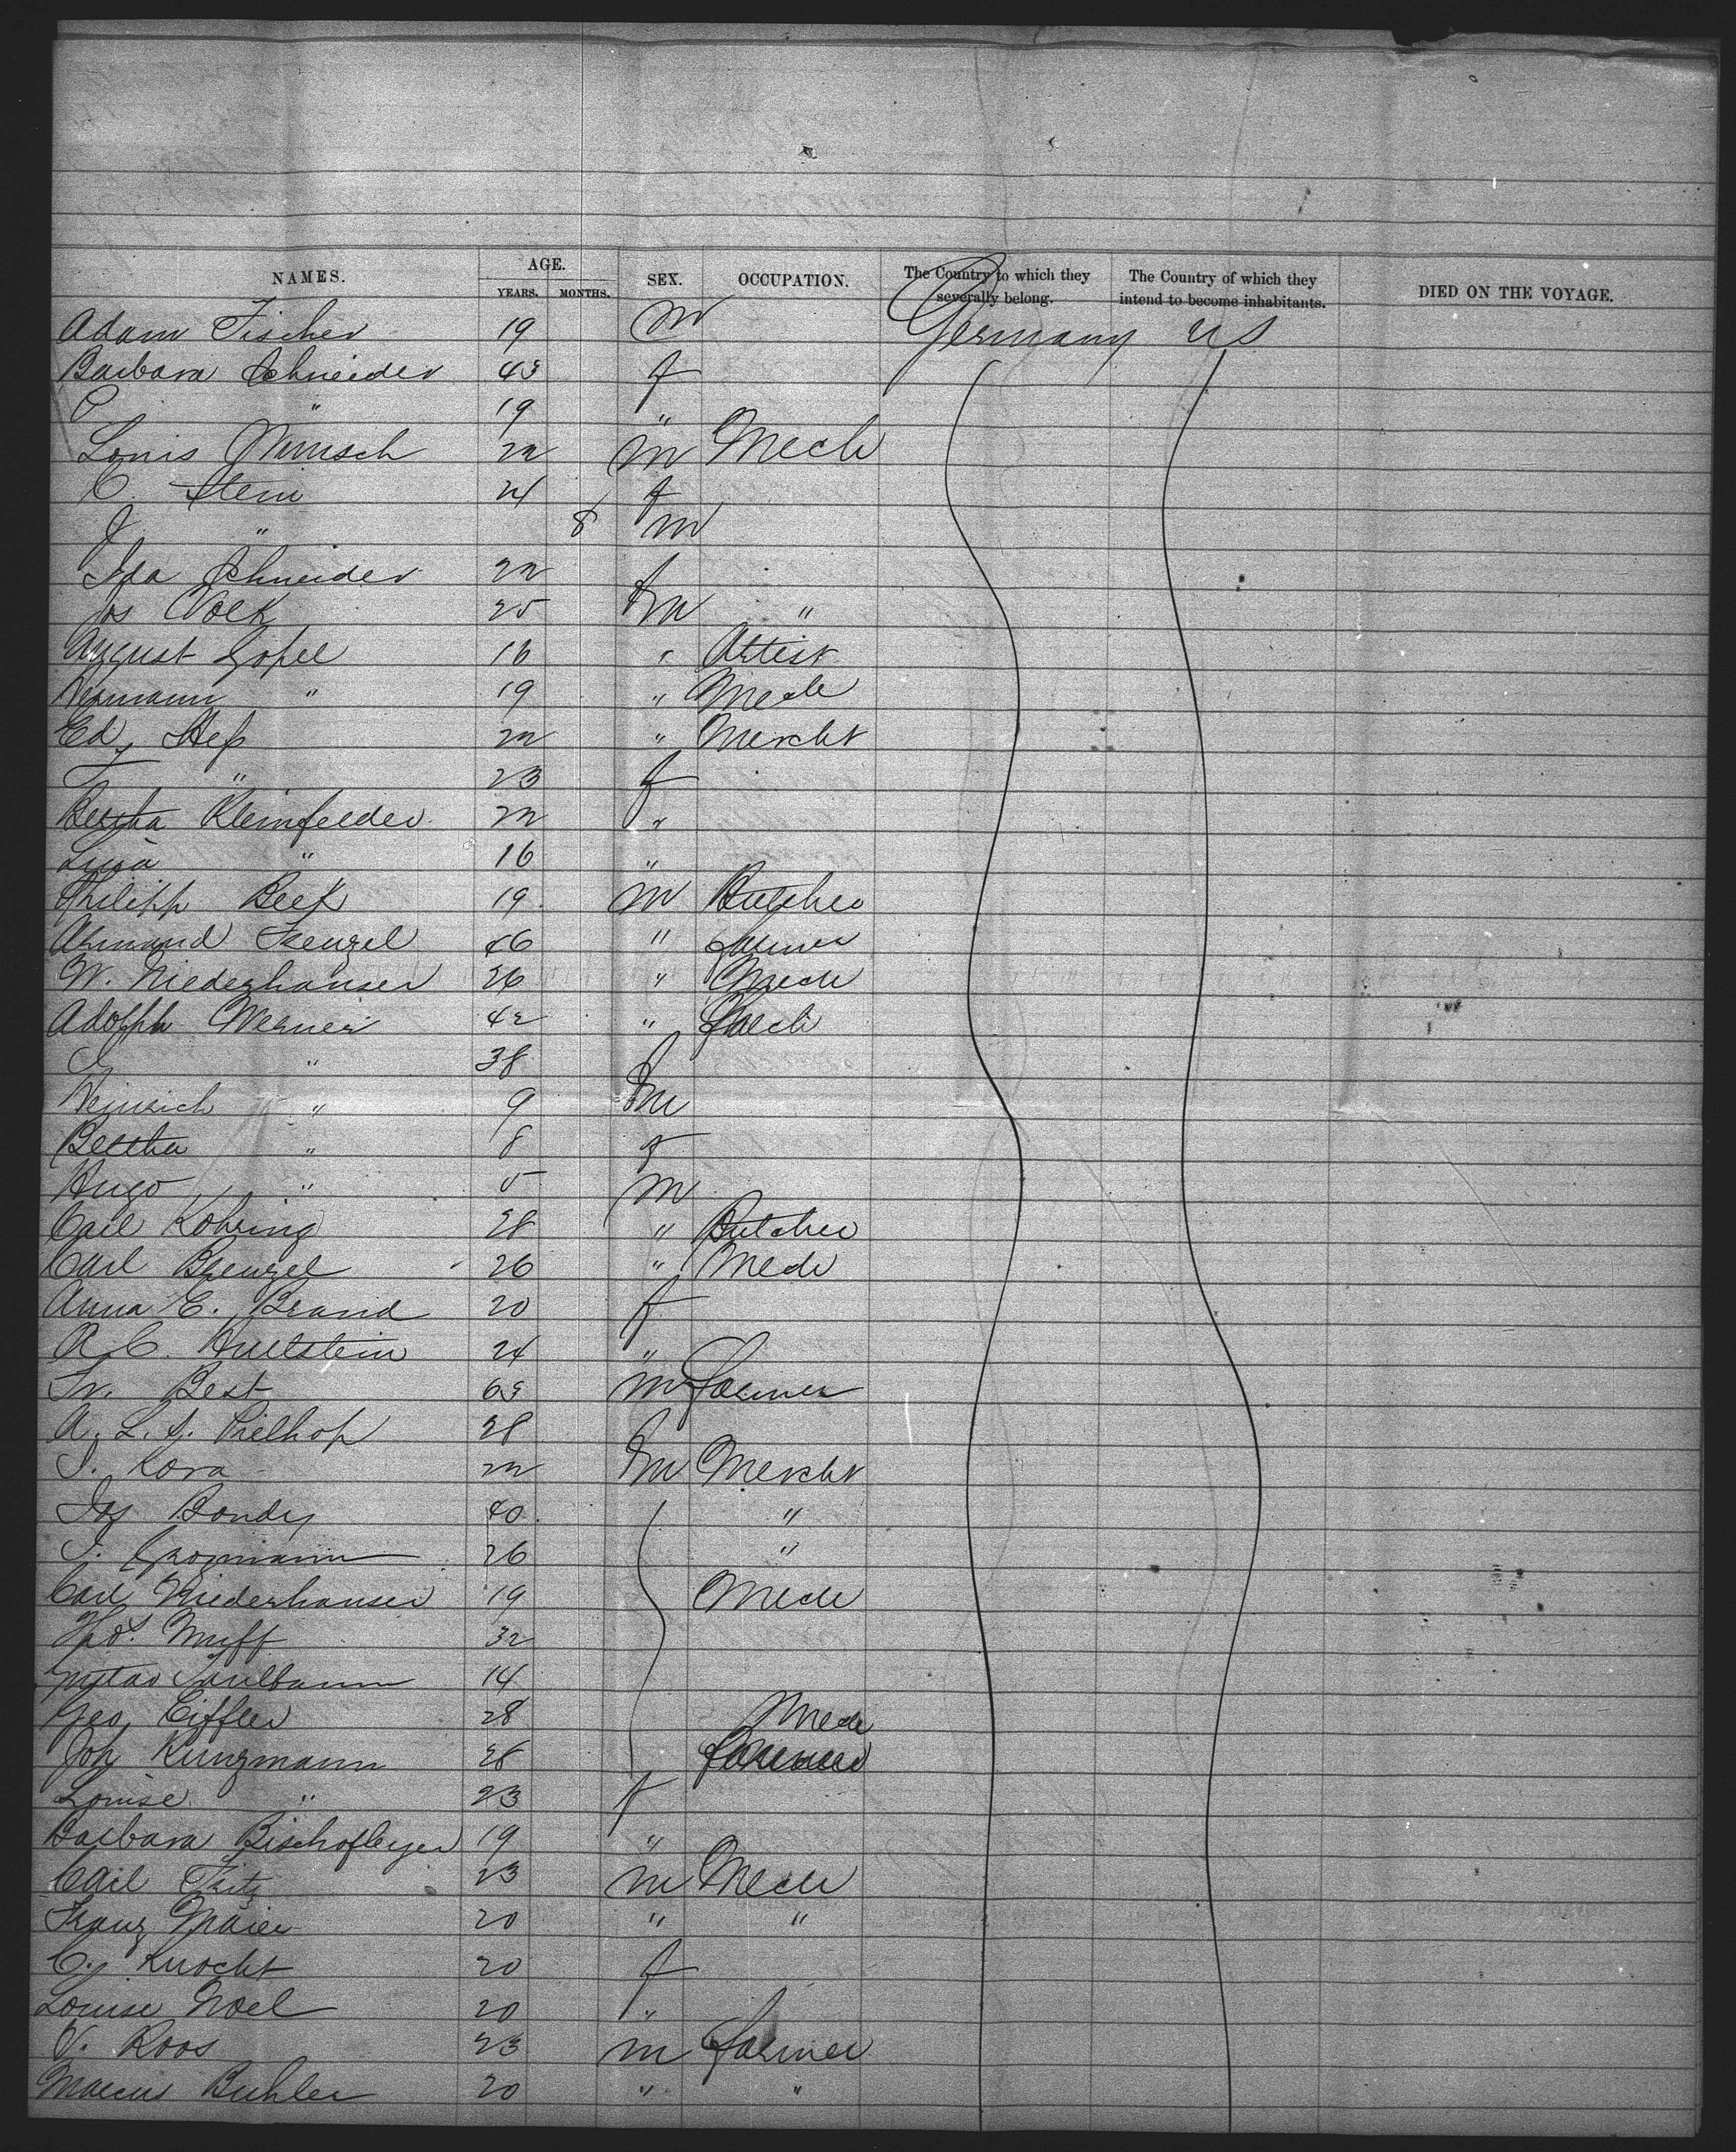 NAMES. AGE. YEARS. MONTHS. SEX. OCCUPATION. The Country to which they severally belong. The Country of which they intend to become inhabitants. DIED ON THE VOYAGE.
Adam Fischer 19 m Germany US
Barbara Schneider 43 f
C " 19 "
Louis 22 m Mech
C. Stein 24 f
J " 8 m
Ida Schneider 22 f
Jos Volk 25 m "
August Gopel 16 " Artist
Hermann " 19 " Mech
Ed Heß 22 " Mercht
F " 23 f
Bertha Kleinfelder 22 "
" 16 "
Philipp Beck 19 m Butcher
Armand Frenzel 46 " farmer
W. Niederhauser 26 " Mech
Adolph Werner 42 "
" 38 f
Heinrich " 9 m
Bertha " 8 f
Hugo " 5 m
Carl Kohring 28 " Butcher
Carl Brenzel 26 " Mech
Anna E. Brand 20 f
A. C. 24 "
Fr. Best 63 m farmer
A. L. S. Pielhop 28 f
I. Kora 22 m Mercht
Jos Bondy 40 "
26 "
Carl Niederhauser 19 Mech
Muff 32
14
Geo Eiffler 28 Mech
Joh Kunzmann 28 farmer
Louise " 23 f
Barbara 19 "
Carl Fritz 23 m Mech
Franz Maier 20 " "
C. Knocht 20 f
Louise Noel 20 "
V. Roos 23 m farmer
Marcus Buhler 20 " "